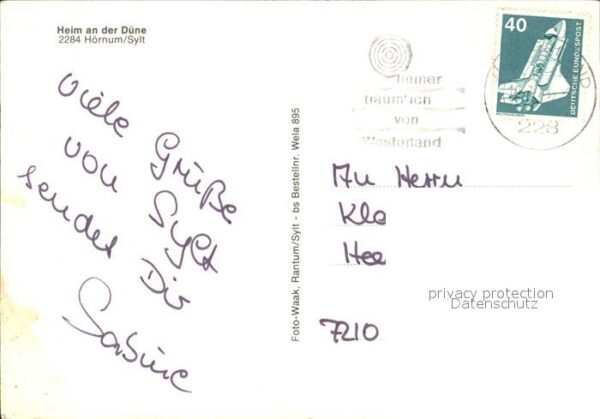 Heim an der Düne
2284 Hörnum/Sylt
Viele Grüße
von Sylt
sendet Dir
Sabine
Foto-Waak, Rantum/Sylt - bs Bestellnr. Wela 895
immer
träum' ich
von
Westerland
40
DEUTSCHE BUNDESPOST
228
An Herrn
Kla
Hee
privacy protection
Datenschutz
7210